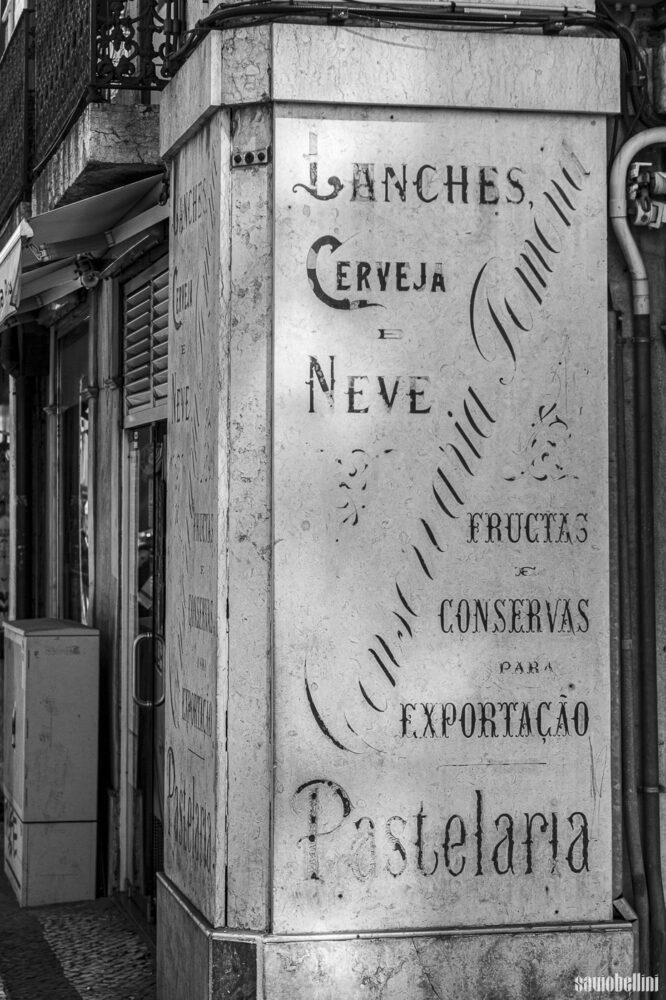 LANCHES,
CERVEJA
E
NEVE
Conservaria Pomona
FRUCTAS
E
CONSERVAS
PARA
EXPORTAÇÃO
Pastelaria
LANCHES,
CERVEJA
E
NEVE
FRUCTAS
E
CONSERVAS
PARA
EXPORTAÇÃO
Pastelaria
saviobellini